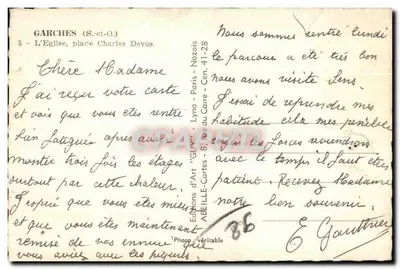 GARCHES (S.-et-O.)
5 - L'Eglise, place Charles Devos
Chère Madame
J'ai reçu votre carte
et vois que vous êtes rentré
bien fatiguée apres avoir
montée trois fois les étages
surtout par cette chaleur.
J'espère que vous êtes mieux
et que vous êtes maintenant
remise de vos ennuis que
vous aviez avec les
Editions d'Art "GUY" - Lyna - Paris - Nozais
ABEILLE-CARTES - 8, rue du Caire - Cen. 41-28
Photo véritable
Nous sommes rentré lundi
le parcours a été très bon
nous avons visité Sens.
J'essai de reprendre mes
habitude cela m'est pénible
les forces reviendront
avec le temps il faut être
patient. Recevez Madame
notre bon souvenir.
E Gauthier
86